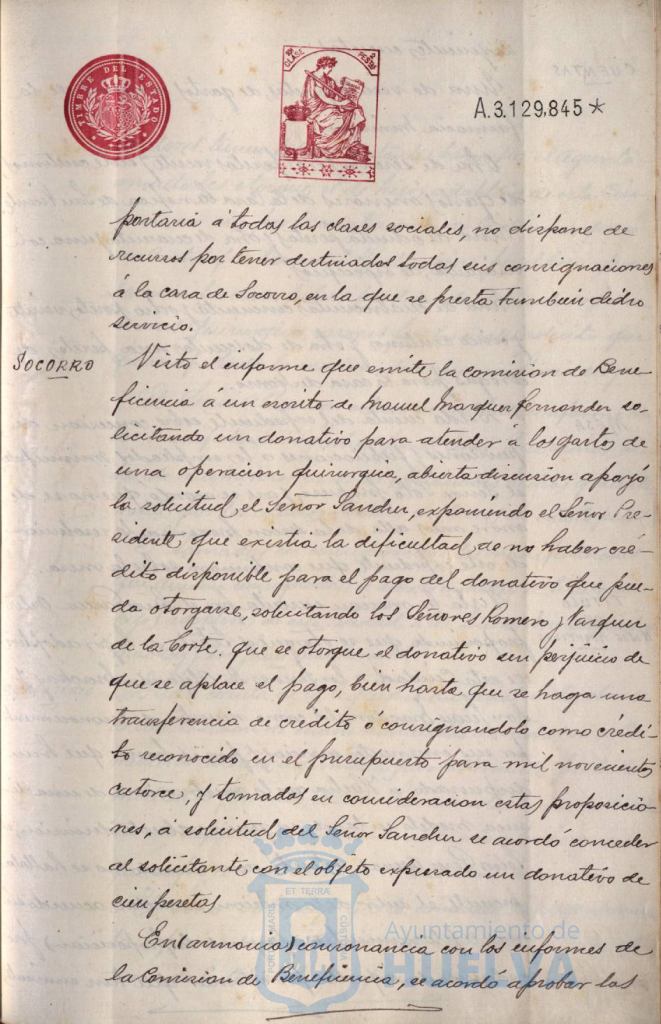 TIMBRE DEL ESTADO
CLASE
PESTAS 2
A.3.129,845*
portaria á todas las clases sociales, no dispone de
recursos por tener destinados todas sus consignaciones
á la casa de Socorro, en la que se presta tambien dicho
servicio.
SOCORRO
Visto el informe que emite la comision de Bene-
ficencia á un escrito de Manuel Marquez Fernandez so-
licitando un donativo para atender á los gastos de
una operacion quirurgica, abierta discusion apoyó
la solicitud el Señor Sanchez, exponiendo el Señor Pre-
sidente que existia la dificultad de no haber cré-
dito disponible para el pago del donativo que pue-
da otorgarse, solicitando los Señores Romero y Vazquez
de la Corte, que se otorgue el donativo sin perjuicio de
que se aplace el pago, bien hasta que se haga una
transferencia de crédito ó consignandolo como crédi-
to reconocido en el presupuesto para mil novecientos
catorce, y tomadas en consideracion estas proposicio-
nes, á solicitud del Señor Sanchez se acordó conceder
al solicitante con el objeto expresado un donativo de
cien pesetas
En (armonia) consonancia con los informes de
la Comision de Beneficencia, se acordó aprobar las
ET TERRA
PORTUS MARIS
CUSTODIA
Ayuntamiento de
HUELVA